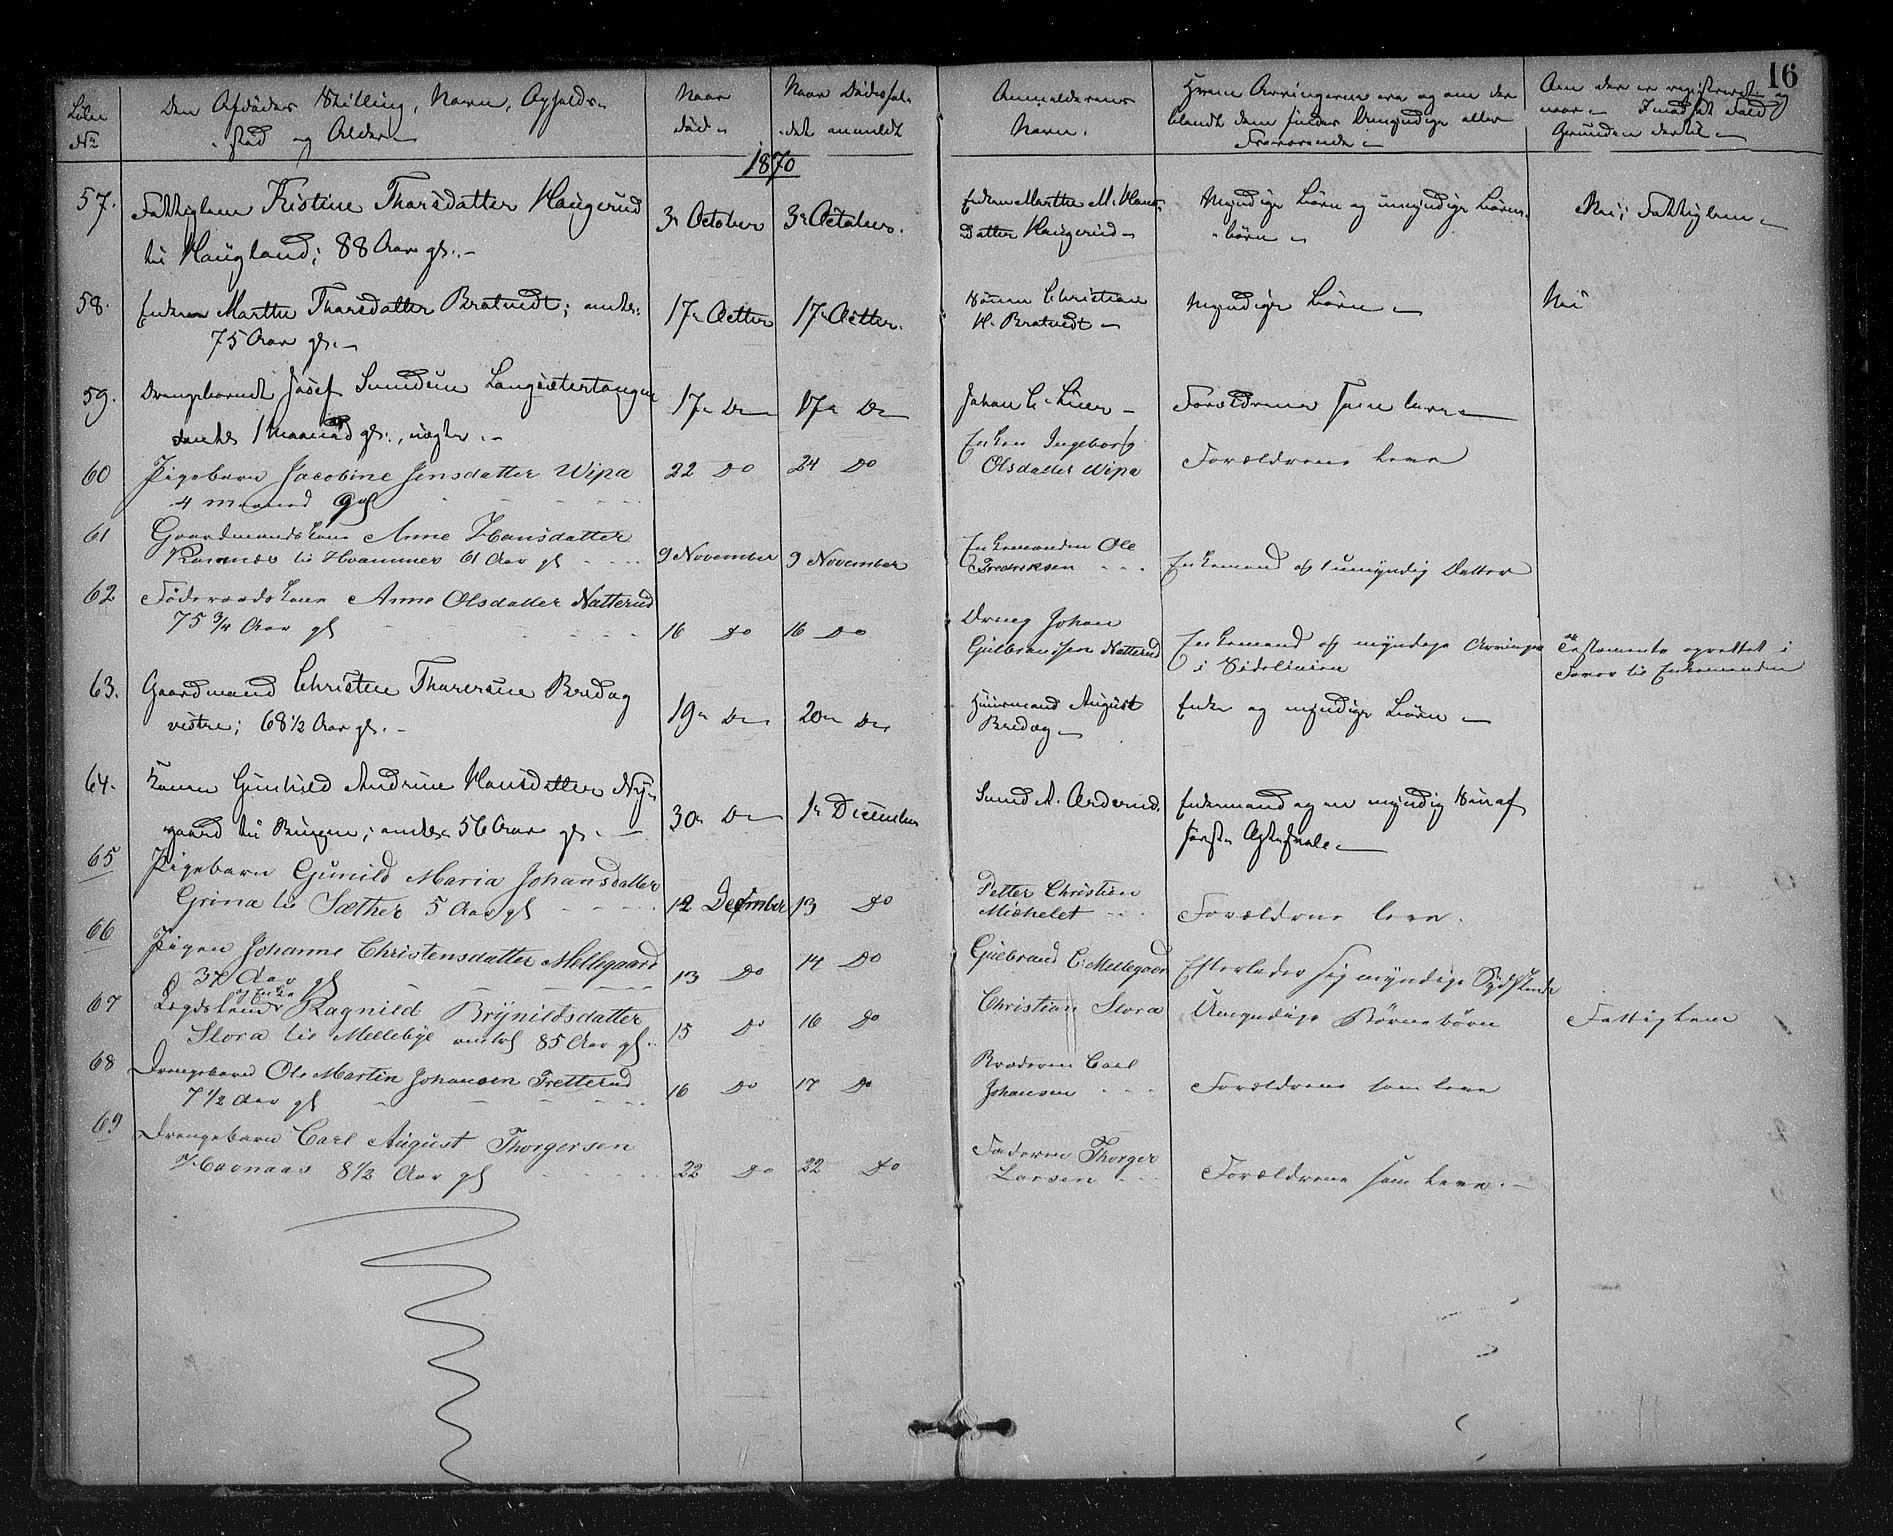 16
Løbe
No
Den Afdødes Stilling, Navn, Opholds-
sted og Alder
Naar
død
Naar Dødsfal-
det anmeldt
Anmelderens
Navn.
Hvem Arvingerne ere og om der
blandt dem findes Umyndige eller
Fraværende
Om der er registreret og
naar. I modsat Fald
Grunden dertil
1870
57. Fattiglem Kristine Thorsdatter Haugerud
til Haugland; 88 Aar gl.
3. October 3. October.
Enken Marthe M. Hans-
Datter Haugerud
Myndige Børn og umyndige Børne-
børn
Nei; Fattiglem
58. Enken Marthe Thorsdatter Bratvedt; omtr.
75 Aar gl.
17. Octber 17. Octber.
Sønnen Christian
H. Bratvedt
Myndige Børn
Nei
59. Drengebarnet Josef Langsætertangen
omtr. 1 Maaned gl., uægte.
17. Do 17. Do
Johan C.
Forældrene som leve
60 Pigebarn Jacobine Jensdatter Wipa
4 maaned gl
22 Do 24 Do
Enken Ingeborg
Olsdatter Wipa
Forældrene leve
61 Gaardmandskone Anne Hansdatter
Ramnæs til Hvammer 61 Aar gl
9 November 9 November
Enkemanden Ole
Fredriksen
Enkemand og 1 umyndig Datter
62 Føderaadskone Anne Olsdatter Natterud
75 3/4 Aar gl
16 Do 16 Do
Dreng Johan
Gulbransen Natterud
Enkemand og myndige Arvinger
i Sidelinien
Testamente oprettet i
Favør til Enkemanden
63. Gaardmand Christen Thoresen Bredag
vestre; 68 1/2 Aar gl.
19. Do 20. Do
Huusmand August
Bredag
Enke og myndige Børn
64. Konen Gunhild Andrine Hansdatter Ny-
gaard til Bingen; omtr. 56 Aar gl.
30. Do 1. December
Svend A. Aaserud.
Enkemand og en myndig Søn af
første Ægteskab.
65 Pigebarn Gunild Maria Johansdatter
Grina til Sæther 5 Aar gl
12 December 13 Do
Petter Christian
Michelet
Forældrene leve.
66 Pigen Johanne Christensdatter Mellegaard
Aar gl
13 Do 14 Do
Gulbrand C. Mellegaard
Efterlader sig myndige Sydskende
67 Lægdslem og Enke Ragnild Brynildsdatter
Slora til Mellebye omtrl 85 Aar gl.
15 Do 16 Do
Christian Slora
Umyndige Børnebørn
Fattiglem
68 Drengebarn Ole Martin Johansen Tretterud
7 1/2 Aar gl
16 Do 17 Do
Broderen Carl
Johansen
Forældrene som leve
69 Drengebarn Carl August Thorgersen
Haavnaas 8 1/2 Aar gl
22 Do 22 Do
Faderen Thorger
Larsen
Forældrene som leve.